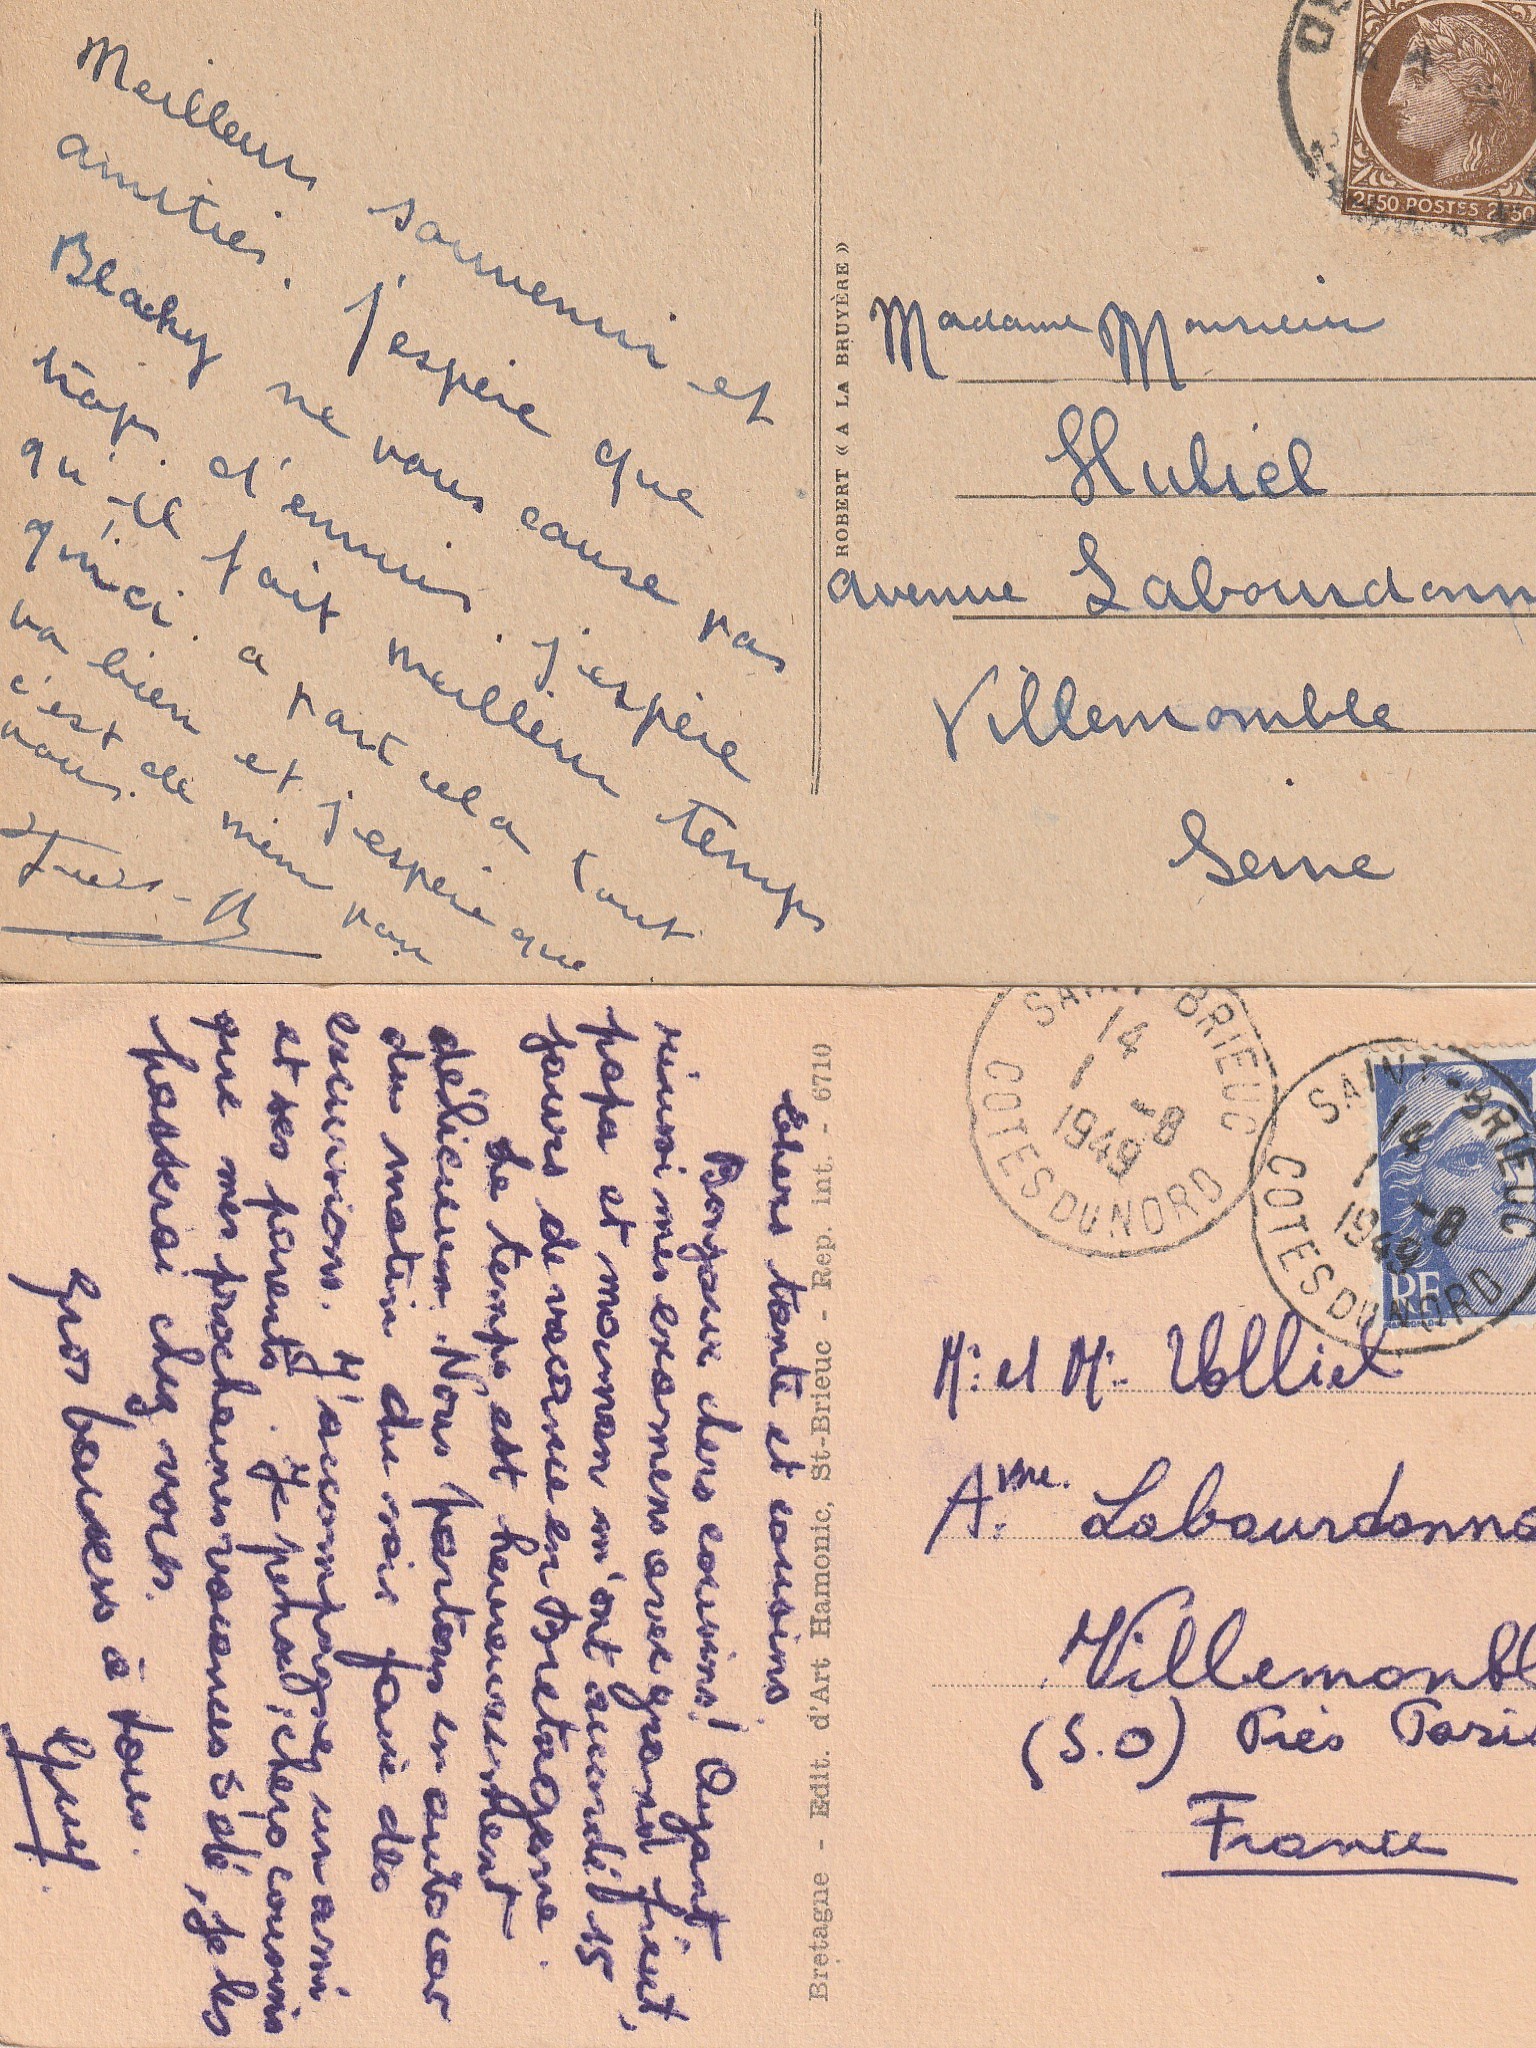 Meilleurs souvenirs et
amitiés. J'espère que
Blacky ne vous cause pas
trop d'ennuis. J'espère
qu'il fait meilleur temps
qu'ici. a part cela tout
va bien et j'espère que
c'est de même pour
vous.
ROBERT « A LA BRUYÈRE »
2F50 POSTES 2F50
Madame Monsieur
avenue Labourdonn
Villemomble
Seine
Chers tante et cousins
Bonjour chers cousins! Ayant
réussi mes examens avec grand fruit,
papa et maman m'ont accordé 15
jours de vacances en Bretagne.
Le temps est heureusement
délicieux. Nous partons en autocar
du matin au soir faire des
excursions. J'accompagne un ami
et ses parents. Je pense, chers cousins
que mes prochaines vacances d'été, je les
passerai chez vous.
Gros baisers à tous.
Guy.
Bretagne - Edit. d'Art Hamonic, St-Brieuc - Rep. int. - 6710
SAINT-BRIEUC
14 -8
1949
COTES DU NORD
SAINT-BRIEUC
14 -8
1949
COTES DU NORD
RF
Mr et Me Volliet
Avnue. Labourdonna
Villemonbl
(S.O) Près Paris
France